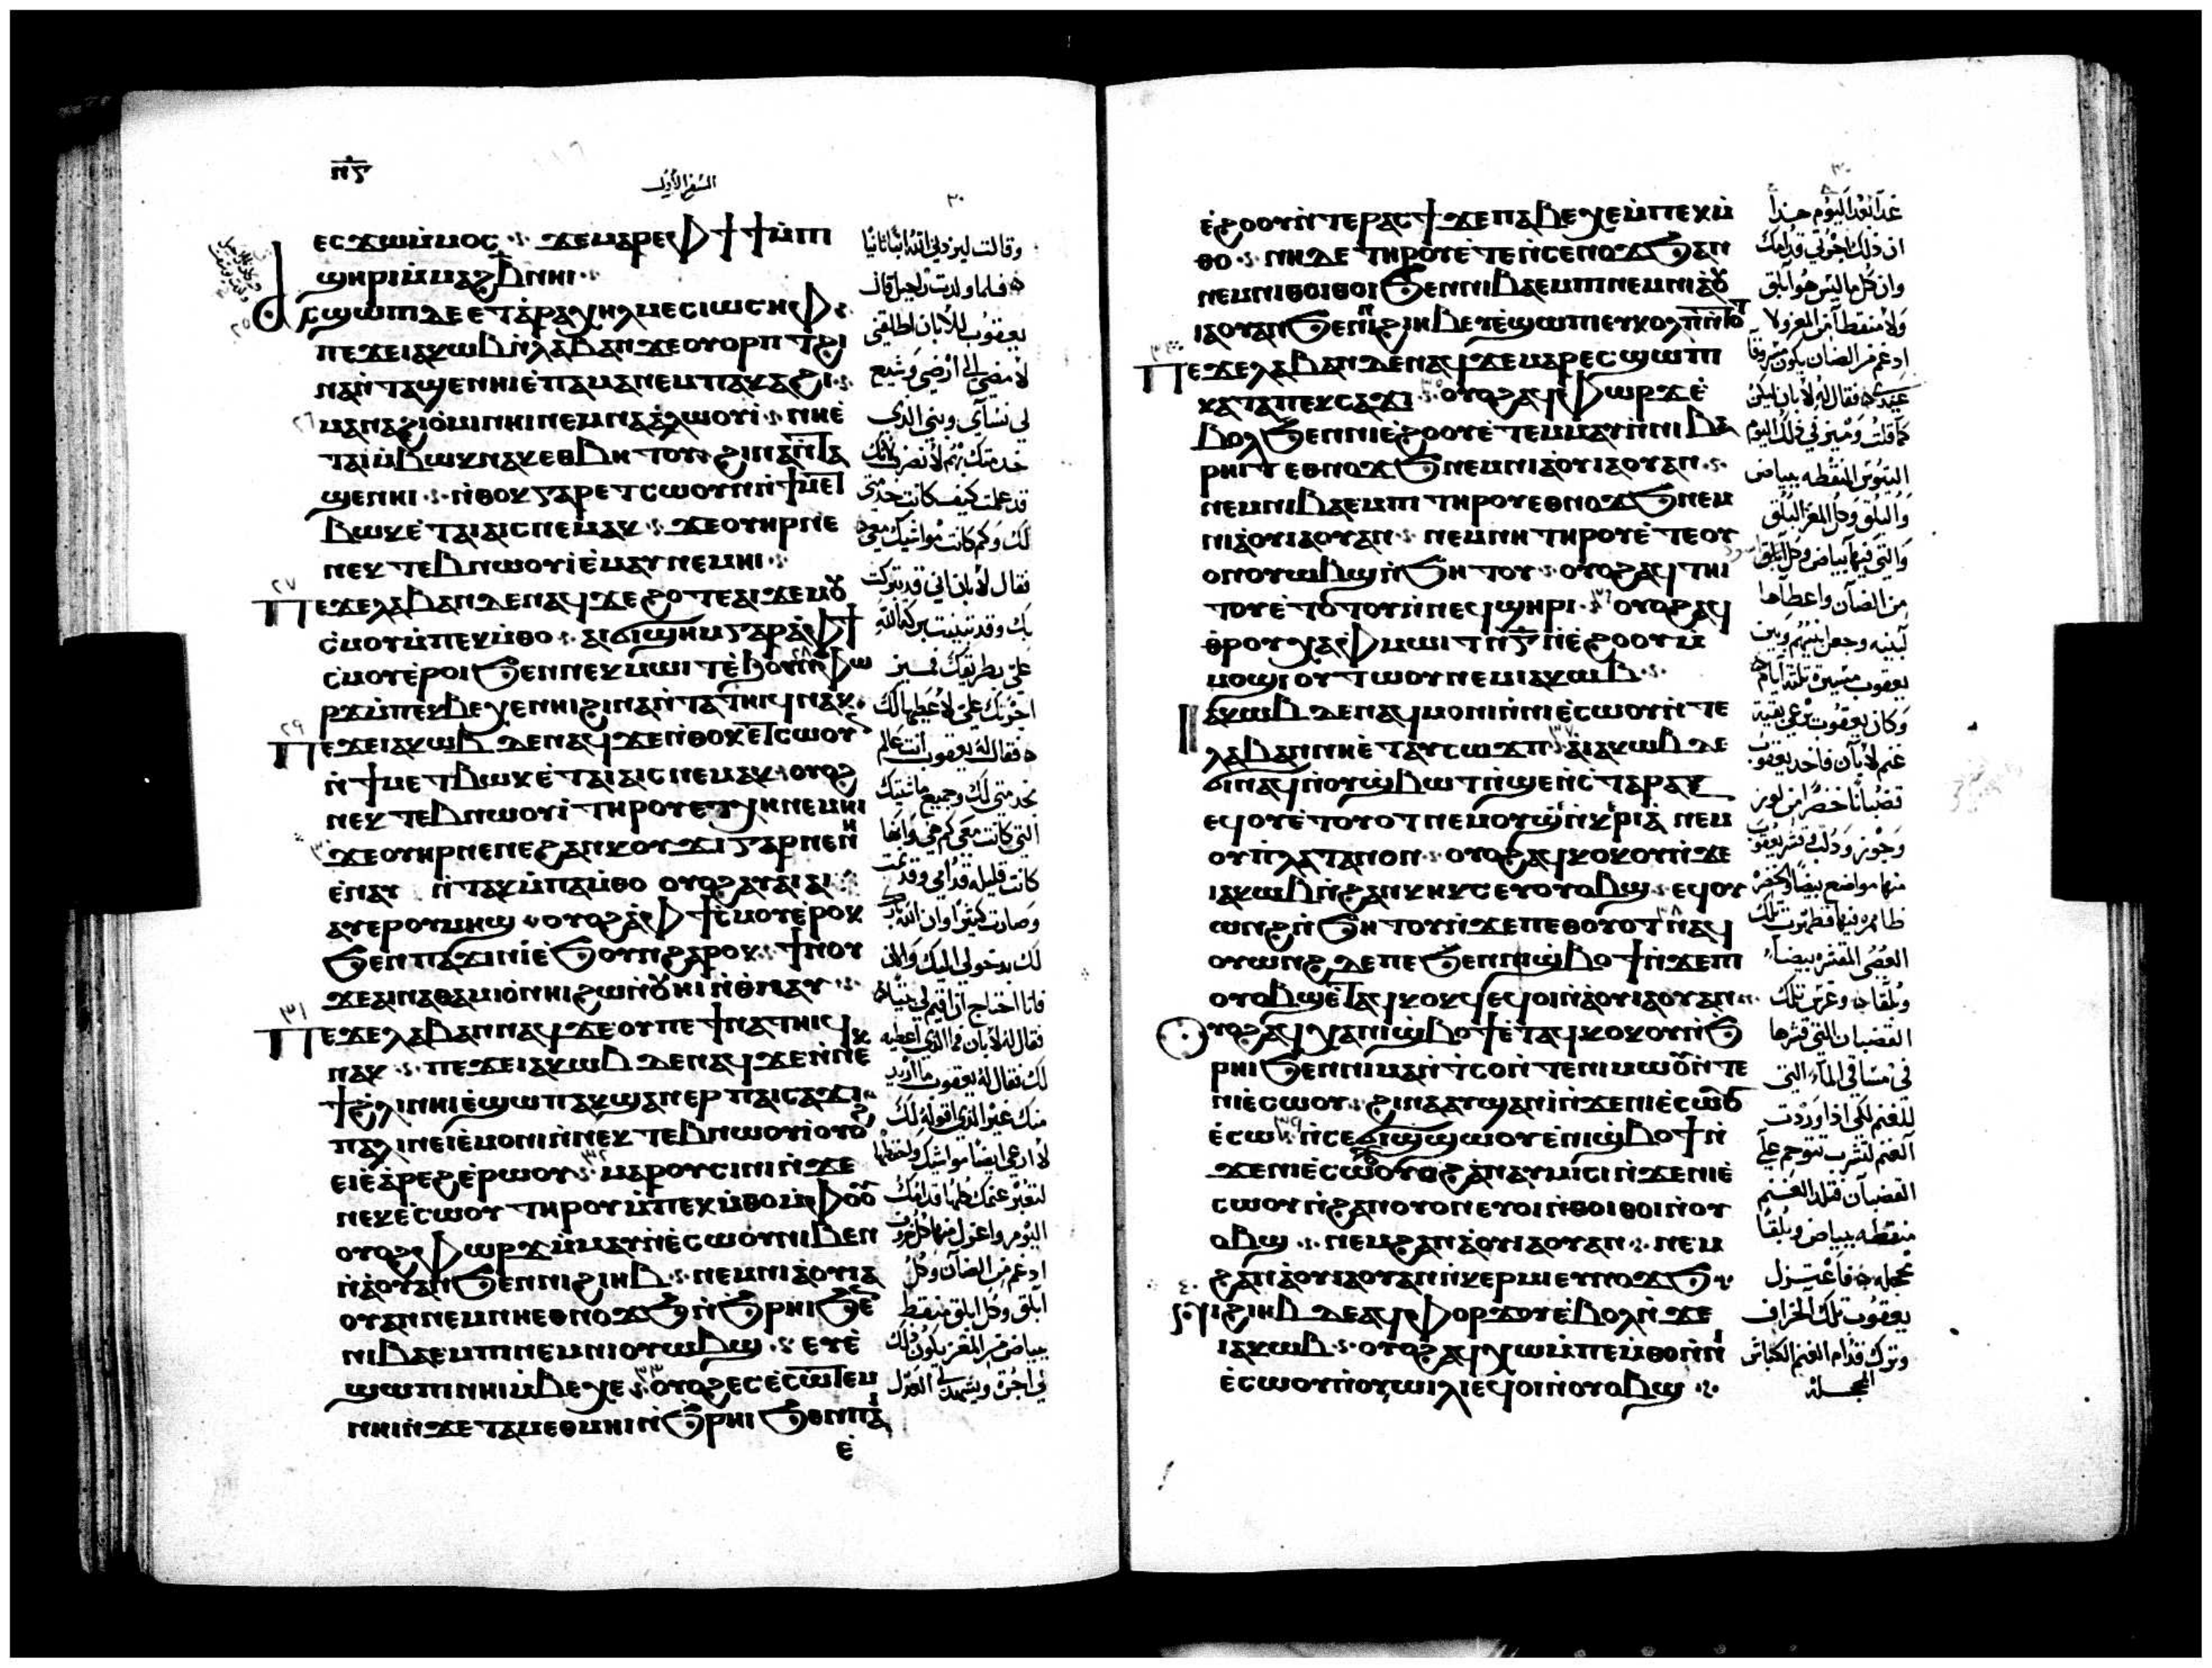 ⲛ̅ⲋ̅
السفر الاول
٣٠
ⲉⲥϫⲱⲙ̀ⲙⲟⲥ ⲋ ϫⲉⲙⲁⲣⲉⲫϯϯⲙ̀ⲡ
ϣⲏⲣⲓⲙ̀ⲙⲁϩⲃ̅ⲛⲏⲓ
ⲁⲥϣⲱⲡⲓⲇⲉⲉⲧⲁⲣⲁⲭⲏⲗⲙⲉⲥⲓⲱⲥⲏⲫ
ⲡⲉϫⲉⲓⲁⲕⲱⲃⲛ̀ⲗⲁⲃⲁⲛϫⲉⲟⲩⲟⲣⲡⲧϩⲓ
ⲛⲁⲛ̀ⲧⲁϣⲉⲛⲏⲓⲉ̀ⲡⲁⲙⲁⲛⲉⲙⲡⲁⲕⲁϩⲓ
ⲙⲁⲛⲁϩⲓⲟ̀ⲙⲓⲛⲏⲓⲛⲉⲙⲛⲁⲁ̀ⲗⲱⲟⲩⲓ̀ ⲛⲏⲉ̀
ⲧⲁⲓⲉⲣⲃⲱⲕⲛⲁⲕⲉⲑⲃⲏⲧⲟⲩϩⲓⲛⲁⲛ̀ⲧⲁ
ϣⲉⲛⲏⲓ ⲛ̀ⲑⲟⲕⲅⲁⲣⲉⲧⲥⲱⲟⲩⲛⲛ̀ϯⲙⲉⲧ
ⲃⲱⲕⲉ̀ⲧⲁⲓⲁⲓⲥⲛⲉⲙⲁⲕ ϫⲉⲟⲩⲏⲣⲡⲉ
ⲛⲉⲕⲧⲉⲃⲛⲱⲟⲩⲓ̀ⲉ̀ⲛⲁⲩⲛⲉⲙⲏⲓ
ⲡⲉϫⲉⲗⲁⲃⲁⲛⲇⲉⲛⲁϥϫⲉ
ⲥⲙⲟⲩⲙ̀ⲡⲉⲕⲙ̀ⲑⲟ ⲁⲓϭⲓϣⲏⲙⲅⲁⲣⲁ̀ⲫϯ
ⲥⲙⲟⲩⲉ̀ⲣⲟⲓϧⲉⲛⲡⲉⲕⲙⲱⲓⲧ ⲫⲱ
ⲣϫⲙ̀ⲡⲉⲕⲃⲉⲭⲉⲛⲏⲓϩⲓⲛⲁⲛ̀ⲧⲁⲧⲏⲓϥⲛⲁⲕ
ⲡⲉϫⲉⲓⲁⲕⲱⲃⲇⲉⲛⲁϥϫⲉⲛ̀ⲑⲟⲕⲉⲧⲥⲱⲟⲩ
ⲛ̀ϯⲙⲉⲧⲃⲱⲕⲉ̀ⲧⲁⲓⲁⲓⲥⲛⲉⲙⲁⲕ ⲟⲩⲟϩ
ⲛⲉⲕⲧⲉⲃⲛⲱⲟⲩⲓ̀ⲧⲏⲣⲟⲩⲉⲧⲭⲏⲛⲉⲙⲏⲓ
ϫⲉⲟⲩⲏⲣⲛⲉⲛⲉϩⲁⲛⲕⲟⲩϫⲓⲅⲁⲣⲛⲉⲛⲏ
ⲉ̀ⲛⲁⲩ ⲛ̀ⲧⲁⲕⲙ̀ⲡⲁⲙ̀ⲑⲟ ⲟⲩⲟϩⲁⲩⲁⲓⲁⲓ
ⲁⲩⲉⲣⲟⲩⲙⲏϣ ⲟⲩⲟϩⲁ̀ⲫϯⲥⲙⲟⲩⲉ̀ⲣⲟⲕ
ϧⲉⲛⲡⲁϫⲓⲛⲓ̀ⲉ̀ϧⲟⲩⲛϩⲁⲣⲟⲕ ϯⲛⲟⲩ
ϫⲉⲁⲓⲛⲁⲑⲁⲙⲓⲟ̀ⲛⲏⲓϩⲱⲛ̀ⲟⲩⲏⲓⲛ̀ⲑⲛⲁⲩ
ⲡⲉϫⲉⲗⲁⲃⲁⲛⲛⲁϥϫⲉⲟⲩⲡⲉϯⲛⲁⲧⲏⲓϥ
ⲛⲁⲕ ⲡⲉϫⲉⲓⲁⲕⲱⲃⲇⲉⲛⲁϥϫⲉⲛ̀ⲛⲉⲕ
ϯϩⲗⲓⲛⲏⲓⲉ̀ϣⲱⲡⲁⲕϣⲁⲛⲉⲣⲡⲁⲓⲥⲁϫⲓ
ⲡⲁⲗⲓⲛⲉⲓⲉ̀ⲙⲟⲛⲓⲛ̀ⲛⲉⲕⲧⲉⲃⲛⲱⲟⲩⲓ̀ⲟⲩⲟϩ
ⲉⲓⲉ̀ⲁ̀ⲣⲉϩⲉ̀ⲣⲱⲟⲩ ⲙⲁⲣⲟⲩⲥⲓⲛⲓⲛ̀ϫⲉ
ⲛⲉⲕⲉ̀ⲥⲱⲟⲩⲧⲏⲣⲟⲩⲙ̀ⲡⲉⲕⲙ̀ⲑⲟⲙ̀ⲫⲟⲟⲩ
ⲟⲩⲟϩⲫⲱⲣϫⲙ̀ⲙⲁⲩⲛ̀ⲉ̀ⲥⲱⲟⲩⲛⲓⲃⲉⲛ
ⲛ̀ⲁ̀ⲟⲩⲁⲛϧⲉⲛⲛⲓϩⲓⲏⲃ ⲛⲉⲙⲛⲓⲁ̀ⲟⲩⲓⲁ̀
ⲟⲩⲁⲛⲛⲉⲙⲛⲏⲉⲑⲛⲟϫϧⲛ̀ϧⲣⲏⲓϧⲉⲛ
ⲛⲓⲃⲁⲉⲙⲡⲛⲉⲙⲛⲓⲟⲩⲱⲃϣ ⲉⲩⲉ̀
ϣⲱⲡⲓⲛⲏⲓⲙ̀ⲃⲉⲭⲉ ⲟⲩⲟϩⲉⲥⲉ̀ⲥⲱⲧⲉⲙ
ⲛⲏⲓⲛ̀ϫⲉⲧⲁⲙⲉⲑⲙⲏⲓⲛ̀ϧⲣⲏⲓϧⲉⲛⲡⲁ
ⲉ̀
وقالت ليزدني الله ابنا ثانيا
فلما ولدت راحيل قال
يعقوب للابان اطلقني
لامضي الى ارضي وشيع
لي نسآي وبني الذي
قد علمت كيف كانت خدمتي
لك وكم كانت مواشيك معي
فقال لابان اني قد تبركت
بك وقد تبينت بركة الله
علي بطريقك فميز
اجرتك علي لاعطيها لك
فقال له يعقوب انت عالم
بخدمتي لك وجميع ماشيتك
التي كانت معي كم هي وانها
كانت قليله قدامي وقد نمت
وصارت كثيرا وان الله بارك
لك بدخولي اليك والان
فانا احتاج ان اقيم لي بيتا
فقال له لابان فما الذي اعطيه
لك فقال له يعقوب ما اريد
منك غير الذي اقوله لك
لتعبر غنمك كلها قدامك
اليوم واعزل منها كل خروف
ادغم من الضآن وكل
ابلق وكل ابلق منقط
ببياض من المعز يكون ذلك
لي اجرة ويشهد لي العدل
٣٠
ⲉ̀ϩⲟⲟⲩⲛ̀ⲧⲉⲣⲁⲥϯ ϫⲉⲡⲁⲃⲉⲭⲉⲙ̀ⲡⲉⲕⲙ̀
ⲑⲟ ⲛⲏⲇⲉⲧⲏⲣⲟⲩⲉ̀ⲧⲉⲛ̀ⲥⲉⲛⲟϫϧⲁⲛ
ⲛⲉⲙⲛⲓⲑⲟⲓⲑⲟⲓϧⲉⲛⲛⲓⲃⲁⲉⲙⲡⲛⲉⲙⲛⲓⲁ̀ⲟⲩ
ⲓⲁⲟⲩⲁⲛϧⲉⲛⲛⲓϩⲓⲏⲃⲉⲩⲉ̀ϣⲱⲡⲓⲉⲩⲕⲟⲗⲡ
ⲡⲉϫⲉⲗⲁⲃⲁⲛⲇⲉⲛⲁϥϫⲉⲙⲁⲣⲉⲥϣⲱⲡ
ⲕⲁⲧⲁⲡⲉⲕⲥⲁϫⲓ ⲟⲩⲟϩⲁϥⲫⲱⲣϫⲉ̀
ⲃⲟⲗϧⲉⲛⲡⲓⲉ̀ϩⲟⲟⲩⲉ̀ⲧⲉⲙⲙⲁⲩⲛ̀ⲛⲓⲃⲁ
ⲣⲏⲓⲧⲉⲑⲛⲟϫϧⲛⲉⲙⲛⲓⲁ̀ⲟⲩⲓⲁⲟⲩⲁⲛ
ⲛⲉⲙⲛⲓⲃⲁⲉⲙⲡⲧⲏⲣⲟⲩⲉⲑⲛⲟϫϧⲛⲉⲙ
ⲛⲓⲁ̀ⲟⲩⲓⲁⲟⲩⲁⲛ ⲛⲉⲙⲛⲏⲧⲏⲣⲟⲩⲉ̀ⲧⲉⲟⲩ
ⲟⲛⲟⲩⲱⲃϣⲛ̀ϧⲏⲧⲟⲩ ⲟⲩⲟϩⲁϥⲧⲏⲓ
ⲧⲟⲩⲉ̀ⲧⲟⲧⲟⲩⲛ̀ⲛⲉϥϣⲏⲣⲓ ⲟⲩⲟϩⲁϥ
ⲑⲣⲟⲩⲭⲁⲫⲙⲱⲓⲧⲛ̀ⲅ̅ⲛ̀ⲉ̀ϩⲟⲟⲩⲙ̀
ⲙⲟϣⲓⲟⲩⲧⲱⲟⲩⲛⲉⲙⲓⲁⲕⲱⲃ
ⲓⲁⲕⲱⲃⲇⲉⲛⲁϥⲙⲟⲛⲓⲛ̀ⲛⲓⲉ̀ⲥⲱⲟⲩⲛ̀ⲧⲉ
ⲗⲁⲃⲁⲛⲛⲏⲉ̀ⲧⲁⲩⲥⲱϫⲡ ⲁ̀ⲓⲁⲕⲱⲃⲇⲉ
ϭⲓⲛⲁϥⲛ̀ⲟⲩϣⲃⲱⲧⲛ̀ϣⲉⲛ̀ⲥⲧⲁⲣⲁⲝ
ⲉϥⲟⲩⲉ̀ⲧⲟⲩⲟⲧⲛⲉⲙⲟⲩϣⲛ̀ⲕⲣⲓⲁ̀ ⲛⲉⲙ
ⲟⲩⲡ̀ⲗⲁⲧⲁⲛⲟⲛ ⲟⲩⲟϩⲁϥⲕⲟⲕⲟⲩⲛ̀ϫⲉ
ⲓⲁⲕⲱⲃⲛ̀ϩⲁⲛⲕⲏⲕⲥⲉⲩⲟⲩⲟⲃϣ ⲉϥⲟⲩ
ⲱⲛϩⲛ̀ϧⲏⲧⲟⲩⲛ̀ϫⲉⲡⲉⲑⲟⲩⲟⲧⲛⲁϥ
ⲟⲩⲱⲛϩⲇⲉⲡⲉϧⲉⲛⲡⲓϣⲃⲟϯⲛ̀ϫⲉⲡ
ⲟⲩⲟⲃϣⲉ̀ⲧⲁϥⲕⲟⲕϥⲉϥⲟⲓⲛ̀ⲁ̀ⲟⲩⲓⲁⲟⲩⲁⲛ
ⲟⲩⲟϩⲁϥⲭⲁⲡⲓϣⲃⲟϯⲉ̀ⲧⲁϥⲕⲟⲕⲟⲩⲛ̀ϧ
ⲣⲏⲓϧⲉⲛⲛⲓⲙⲁⲛ̀ⲧⲥⲟⲛ̀ⲧⲉⲛⲓⲙⲱⲟⲩⲛ̀ⲧⲉ
ⲛⲓⲉ̀ⲥⲱⲟⲩ ϩⲓⲛⲁⲁⲩϣⲁⲛⲓ̀ⲛ̀ϫⲉⲛⲓⲉ̀ⲥⲱⲟⲩ
ⲉ̀ⲥⲱ ⲛ̀ⲥⲉϭⲓϣϣⲱⲟⲩⲉ̀ⲡⲓϣⲃⲟϯⲛ̀
ϫⲉⲛⲓⲉ̀ⲥⲱⲟⲩⲟⲩⲟϩⲁⲛⲁⲩⲙⲓⲥⲓⲛ̀ϫⲉⲛⲓⲉ̀
ⲥⲱⲟⲩⲛ̀ϩⲁⲛⲟⲩⲟⲛⲉⲩⲟⲓⲛ̀ⲑⲟⲓⲑⲟⲓⲛ̀ⲟⲩ
ⲟⲃϣ ⲛⲉⲙϩⲁⲛⲁ̀ⲟⲩⲓⲁⲟⲩⲁⲛ ⲛⲉⲙ
ϩⲁⲛⲁ̀ⲟⲩⲓⲁⲟⲩⲁⲛⲛ̀ⲕⲉⲣⲙⲓⲉⲩⲛⲟϫϧ
ⲛⲓϩⲓⲏⲃⲇⲉⲁϥⲫⲟⲣϫⲟⲩⲉ̀ⲃⲟⲗⲛ̀ϫⲉ
ⲓⲁⲕⲱⲃ ⲟⲩⲟϩⲁϥⲭⲱⲙ̀ⲡⲉⲙ̀ⲑⲟⲛ̀ⲛⲓ
ⲉ̀ⲥⲱⲟⲩⲛ̀ⲟⲩⲱⲓⲗⲓⲉϥⲟⲓⲛ̀ⲟⲩⲟⲃϣ
غدا بعد اليوم هذا
ان ذلك اجرتي قدامك
وان كل ما ليس هو ابلق
ولا منقطا من المعز ولا
ادغم من الضان يكون مسروقا
عندي فقال له لابان ليكن
كما قلت وميز في ذلك اليوم
التيوس المنقطه ببياض
والبلق وكل المعز البلق
والتي فيها بياض وكل ابلق
من الضآن واعطاها
لبنيه وجعل بينهم وبين
يعقوب مسيرة ثلثة ايام
وكان يعقوب يرعى بقية
غنم لابان فاخذ يعقوب
قضبانا خضرا من لوز
وجوز ودلب وقشر يعقوب
منها مواضع بيضا والخضره
العصى المقشره بيضا
وبلقا وغرس تلك
القضبان التي قشرها
في مساقي المآء التي
للغنم لكي اذا وردت
الغنم لتشرب تتوحم على
القضبان فتلد الغنم
منقطه ببياض وبلقا
فاعتزل
يعقوب تلك الخراف
وترك قدام الغنم الكباش